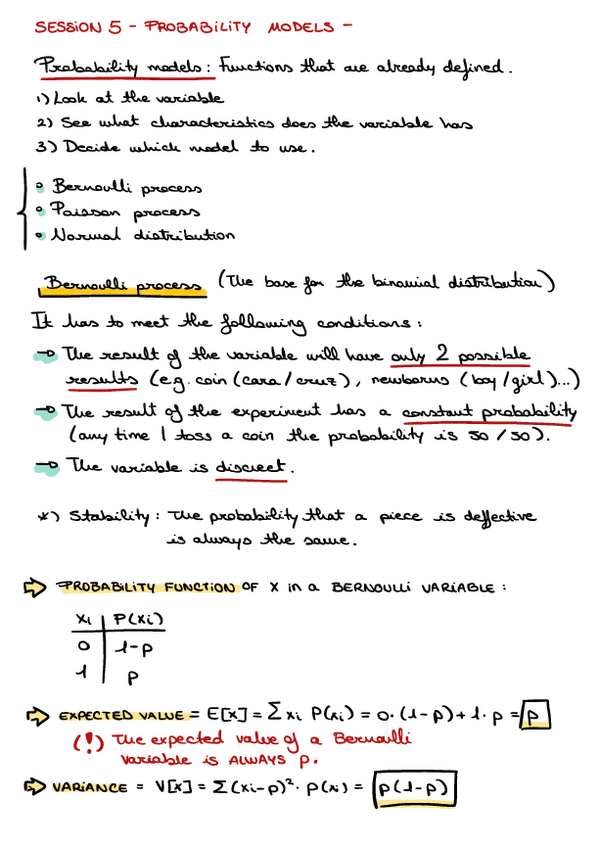 SESSION 5 - PROBABILITY MODELS -
Probability models: Functions that are already defined.
1) Look at the variable
2) See what characteristics does the variable has
3) Decide which model to use.
• Bernoulli process
• Poisson process
• Normal distribution
Bernoulli process (The base for the binomial distribution)
It has to meet the following conditions:
→ The result of the variable will have only 2 possible
results (e.g. coin (cara/cruz), newborns (boy/girl)...)
→ The result of the experiment has a constant probability
(any time I toss a coin the probability is 50/50).
→ The variable is discreet.
*) Stability: The probability that a piece is deffective
is always the same.
⇨ PROBABILITY FUNCTION OF X in a BERNOULLI VARIABLE:
xi | P(xi)
0 | 1-p
1 | p
⇨ EXPECTED VALUE = E[x] = Σ xi P(xi) = 0·(1-p)+1·p = p
(!) The expected value of a Bernoulli
variable is ALWAYS p.
⇨ VARIANCE = V[x] = Σ(xi-p)²·p(xi) = p(1-p)